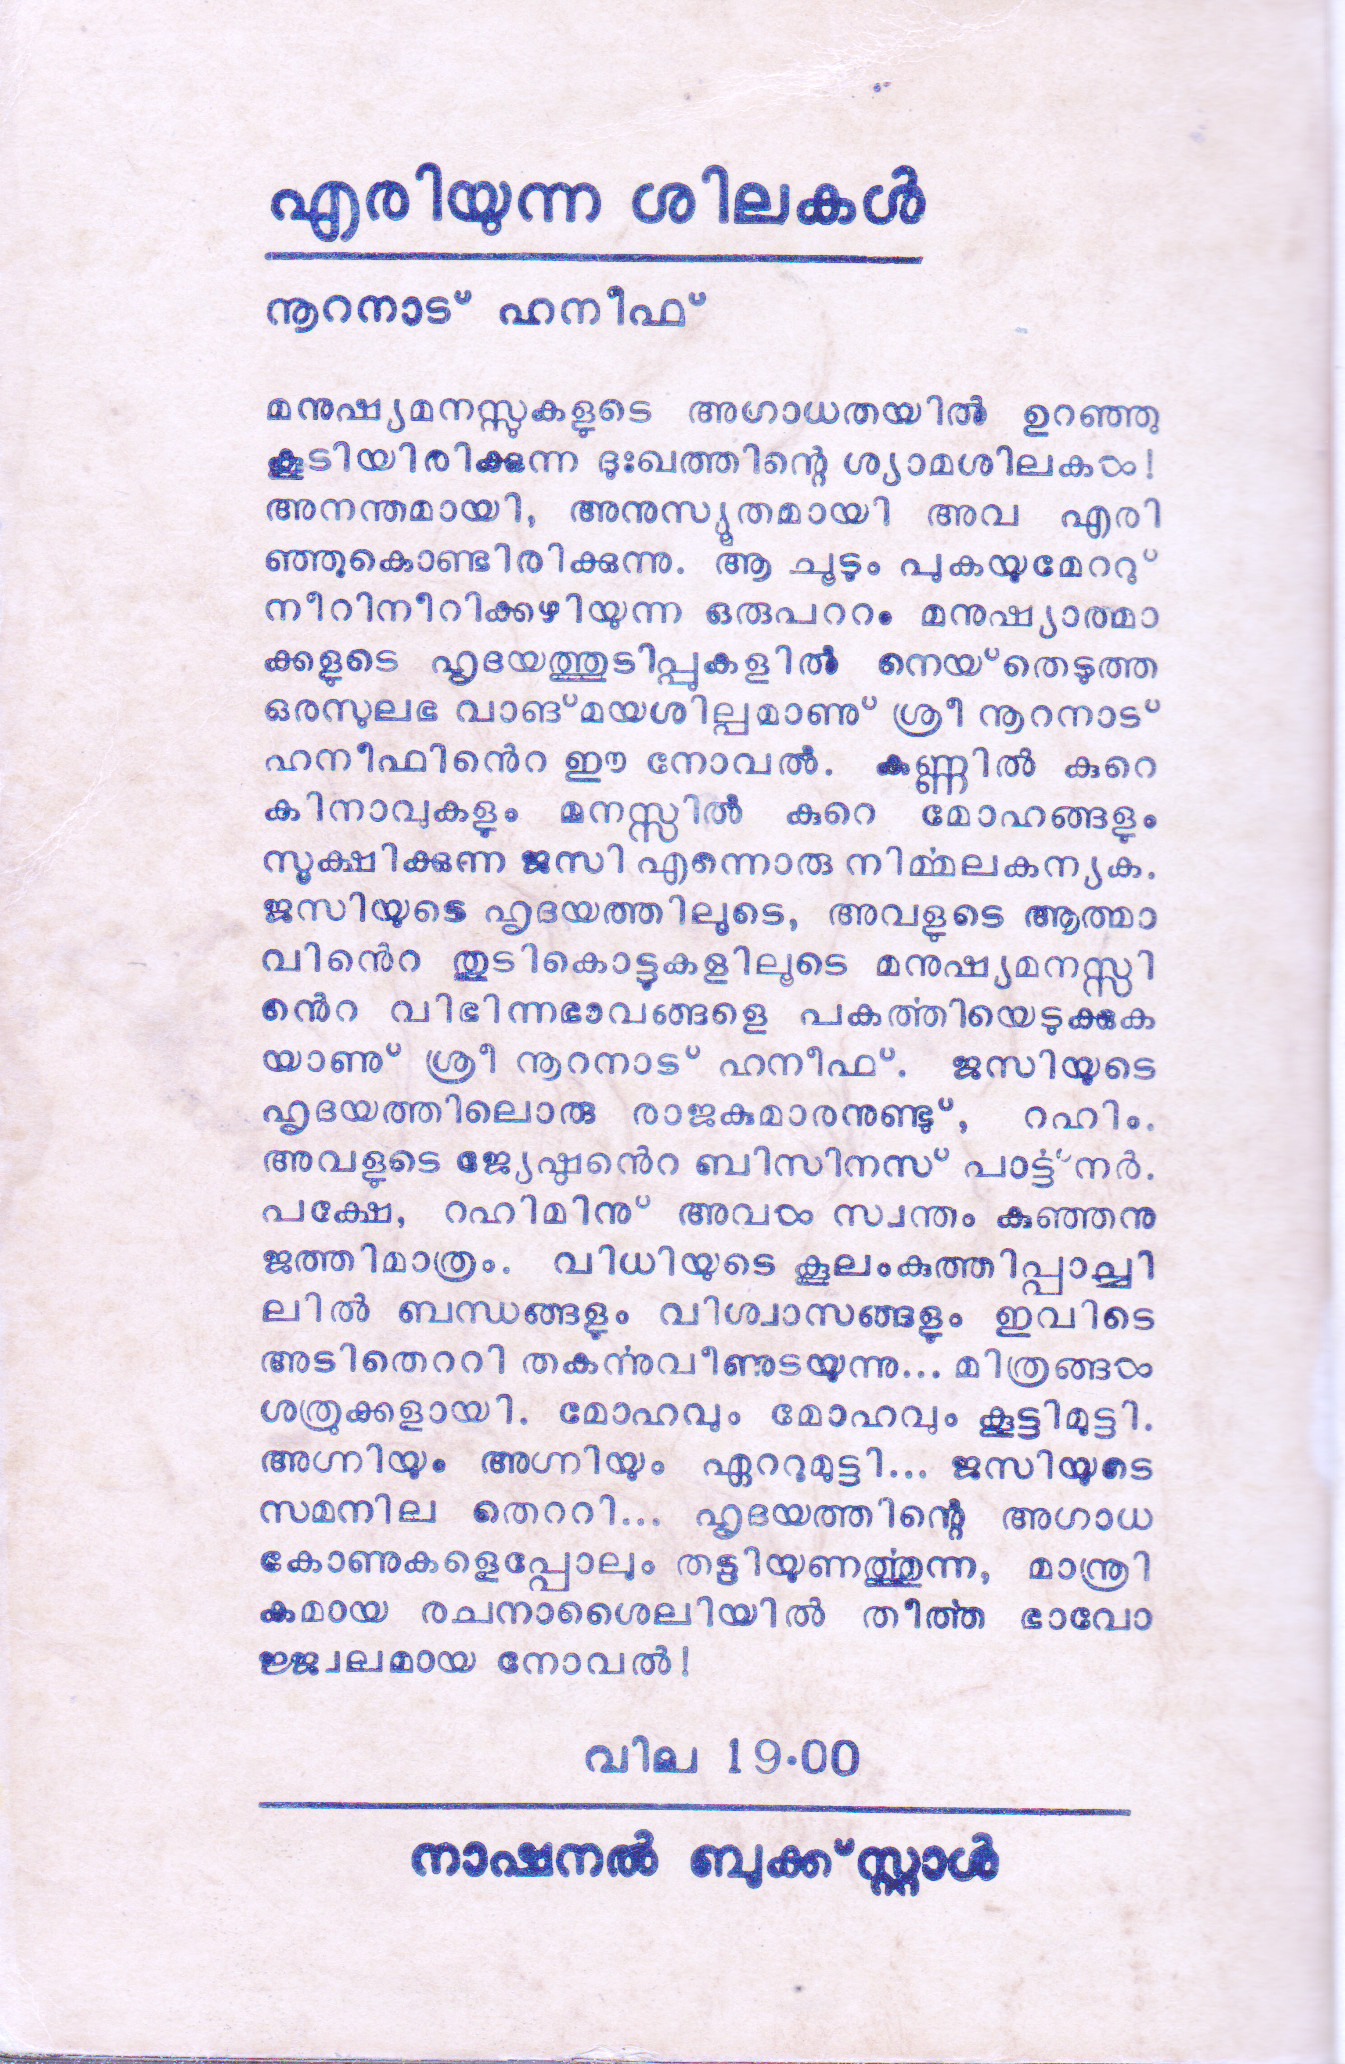 എരിയുന്ന ശിലകൾ
നൂറനാട് ഹനീഫ്
മനുഷ്യമനസ്സുകളുടെ അഗാധതയിൽ ഉറഞ്ഞു
കൂടിയിരിക്കുന്ന ദുഃഖത്തിന്റെ ശ്യാമശിലകൾ!
അനന്തമായി, അനുസ്യൂതമായി അവ എരി
ഞ്ഞുകൊണ്ടിരിക്കുന്നു. ആ ചൂടും പുകയുമേററു്
നീറിനീറിക്കഴിയുന്ന ഒരുപററം മനുഷ്യാത്മാ
ക്കളുടെ ഹൃദയത്തുടിപ്പുകളിൽ നെയ്തെടുത്ത
ഒരസുലഭ വാങ്മയശില്പമാണു് ശ്രീ നൂറനാട്
ഹനീഫിൻെറ ഈ നോവൽ. കണ്ണിൽ കുറെ
കിനാവുകളും മനസ്സിൽ കുറെ മോഹങ്ങളും
സൂക്ഷിക്കുന്ന ജസി എന്നൊരു നിർമ്മലകന്യക.
ജസിയുടെ ഹൃദയത്തിലൂടെ, അവളുടെ ആത്മാ
വിൻെറ തുടികൊട്ടുകളിലൂടെ മനുഷ്യമനസ്സി
ൻെറ വിഭിന്നഭാവങ്ങളെ പകർത്തിയെടുക്കുക
യാണു് ശ്രീ നൂറനാട് ഹനീഫ്. ജസിയുടെ
ഹൃദയത്തിലൊരു രാജകുമാരനുണ്ടു്, റഹിം.
അവളുടെ ജ്യേഷ്ഠൻെറ ബിസിനസ് പാർട്ട്നർ.
പക്ഷേ, റഹിമിനു് അവൾ സ്വന്തം കുഞ്ഞനു
ജത്തിമാത്രം. വിധിയുടെ കൂലംകുത്തിപ്പാച്ചി
ലിൽ ബന്ധങ്ങളും വിശ്വാസങ്ങളും ഇവിടെ
അടിതെററി തകർന്നുവീണുടയുന്നു... മിത്രങ്ങൾ
ശത്രുക്കളായി. മോഹവും മോഹവും കൂട്ടിമുട്ടി.
അഗ്നിയും അഗ്നിയും ഏററുമുട്ടി... ജസിയുടെ
സമനില തെററി... ഹൃദയത്തിന്റെ അഗാധ
കോണുകളെപ്പോലും തട്ടിയുണർത്തുന്ന, മാന്ത്രി
കമായ രചനാശൈലിയിൽ തീർത്ത ഭാവോ
ജ്ജ്വലമായ നോവൽ!
വില 19·00
നാഷനൽ ബുക്ക്സ്റ്റാൾ